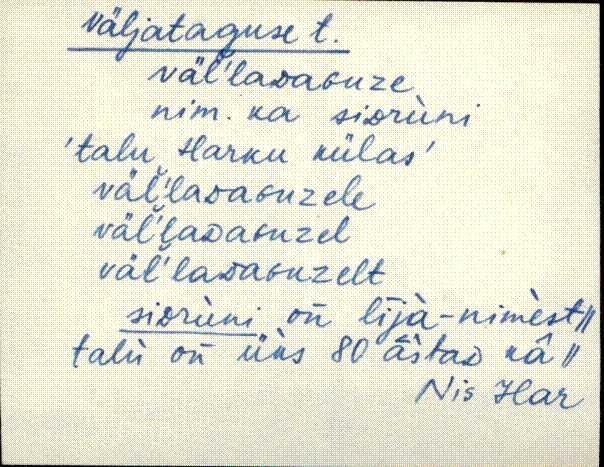 Väljataguse t.
väl'laᴅaɢuze
nim. ka siᴅrùni
'talu Harku külas'
väl'laᴅaɢuzele
väl'laᴅaɢuzel
väl'laᴅaɢuzelt
siᴅrùni on̄ līj̀à-nimèst //
talù on̄ üks 80 âi̯staᴅ kâ //
Nis Har